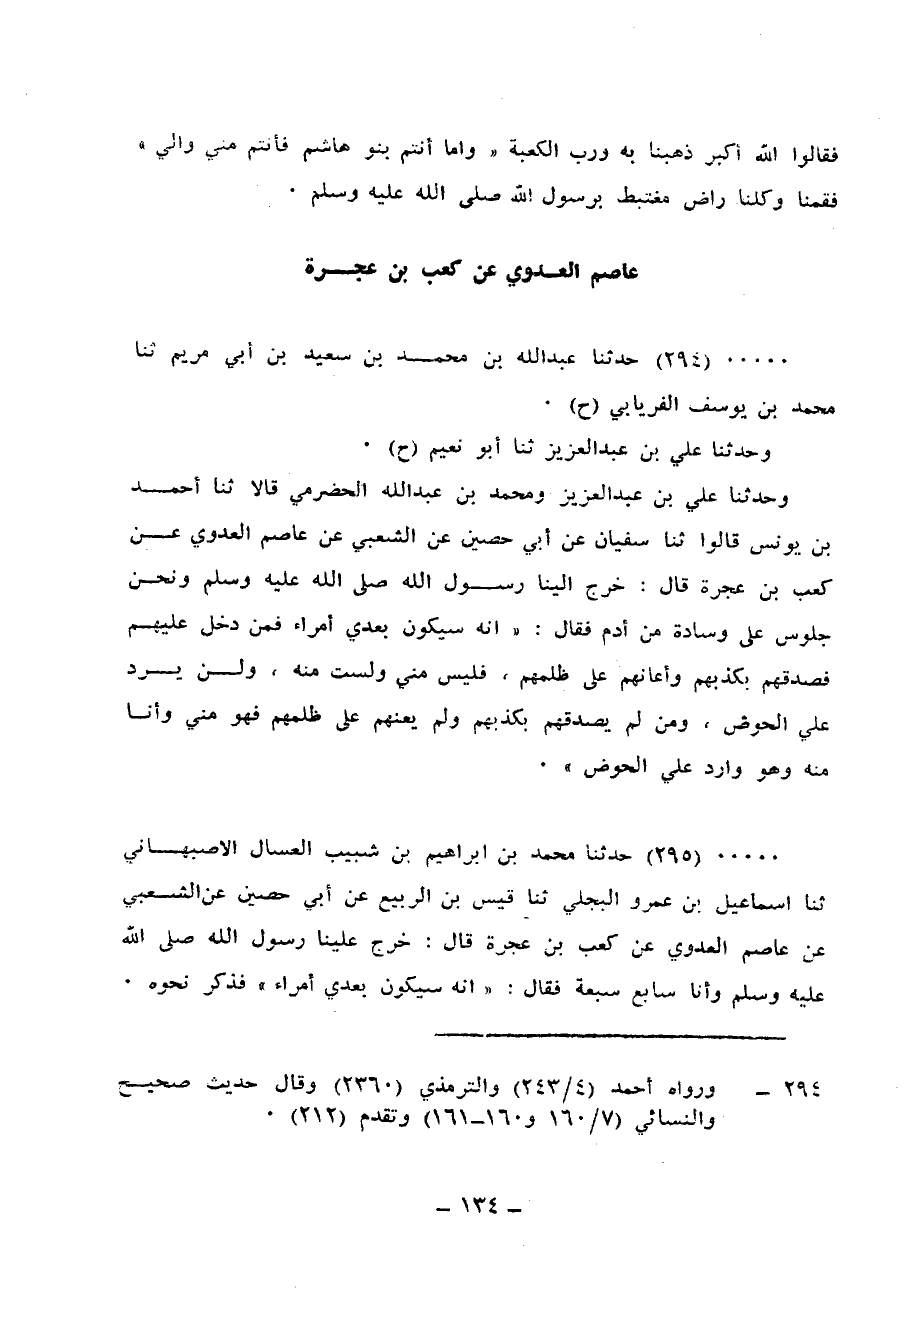 فقالوا الله أكبر ذهبنا به ورب الكعبة « واما أنتم بنو هاشم فأنتم مني والي »
فقمنا وكلنا راض مغتبط برسول الله صلى الله عليه وسلم ٠
عاصم العـدوي عن كعب بن عجـــرة
٠٠٠٠٠ (٢٩٤) حدثنا عبدالله بن محمـــد بن سعيد بن أبي مريم ثنا
محمد بن يوسف الفريابي (ح) ٠
وحدثنا علي بن عبدالعزيز ثنا أبو نعيم (ح) ٠
وحدثنا علي بن عبدالعزيز ومحمد بن عبدالله الحضرمي قالا ثنا أحمـــد
بن يونس قالوا ثنا سفيان عن أبي حصين عن الشعبي عن عاصم العدوي عـــن
كعب بن عجرة قال : خرج الينا رســـول الله صلى الله عليه وسلم ونحـن
جلوس على وسادة من أدم فقال : « انه سيكون بعدي أمراء فمن دخل عليهـم
فصدقهم بكذبهم وأعانهم على ظلمهم ، فليس مني ولست منه ، ولـــن يـــرد
علي الحوض ، ومن لم يصدقهم بكذبهم ولم يعنهم على ظلمهم فهو مني وأنـا
منه وهو وارد علي الحوض » ٠
٠٠٠٠٠ (٢٩٥) حدثنا محمد بن ابراهيم بن شبيب العسال الاصبهـــاني
ثنا اسماعيل بن عمرو البجلي ثنا قيس بن الربيع عن أبي حصين عن الشـــعبي
عن عاصم العدوي عن كعب بن عجرة قال : خرج علينا رسول الله صلى الله
عليه وسلم وأنا سابع سبعة فقال : « انه سيكون بعدي أمراء » فذكر نحوه ٠
٢٩٤ ـ ورواه أحمد (٢٤٣/٤) والترمذي (٢٣٦٠) وقال حديث صحيـــح
والنسائي (١٦٠/٧ و١٦٠ـ١٦١) وتقدم (٢١٢) ٠
ـ ١٣٤ ـ